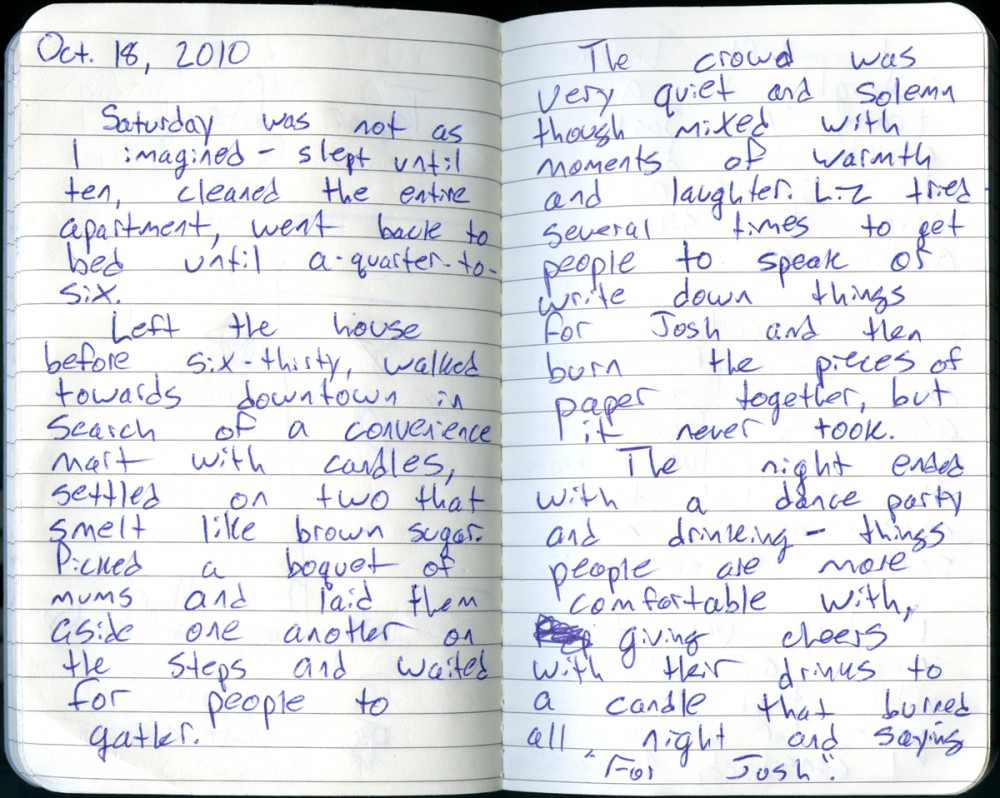 Oct. 18, 2010
Saturday was not as
I imagined - slept until
ten, cleaned the entire
apartment, went back to
bed until a-quarter-to-
six.
Left the house
before six-thirty, walked
towards downtown in
search of a convenience
mart with candles,
settled on two that
smelt like brown sugar.
Picked a boquet of
mums and laid them
aside one another on
the steps and waited
for people to
gather.
The crowd was
very quiet and solemn
though mixed with
moments of warmth
and laughter. Liz tried
several times to get
people to speak or
write down things
for Josh and then
burn the pieces of
paper together, but
it never took.
The night ended
with a dance party
and drinking - things
people are more
comfortable with,
giving cheers
with their drinks to
a candle that burned
all night and saying
"For Josh".